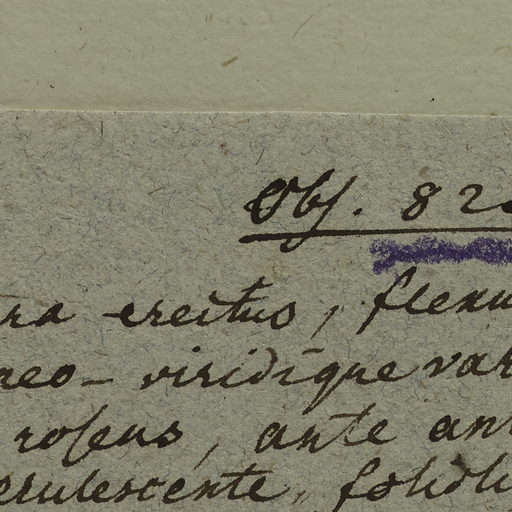 Obſ. 82
tra erectus, flexu
neo-viridique var
roſeus, ante an
erulescente, foliol